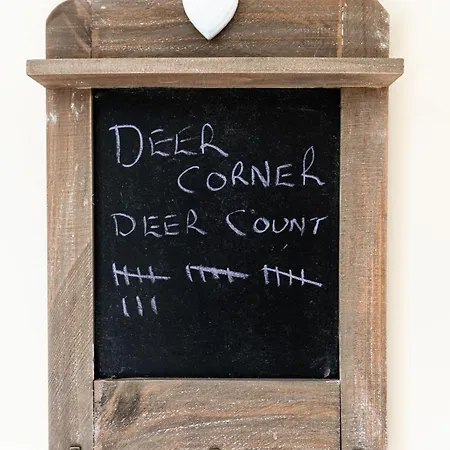 DEER
CORNER
DEER COUNT